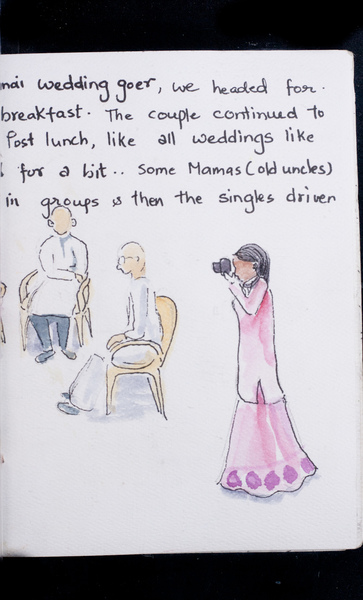 nai wedding goer, we headed for.
breakfast. The couple continued to
Post lunch, like all weddings like
for a bit.. Some Mamas (old uncles)
in groups & then the singles driven